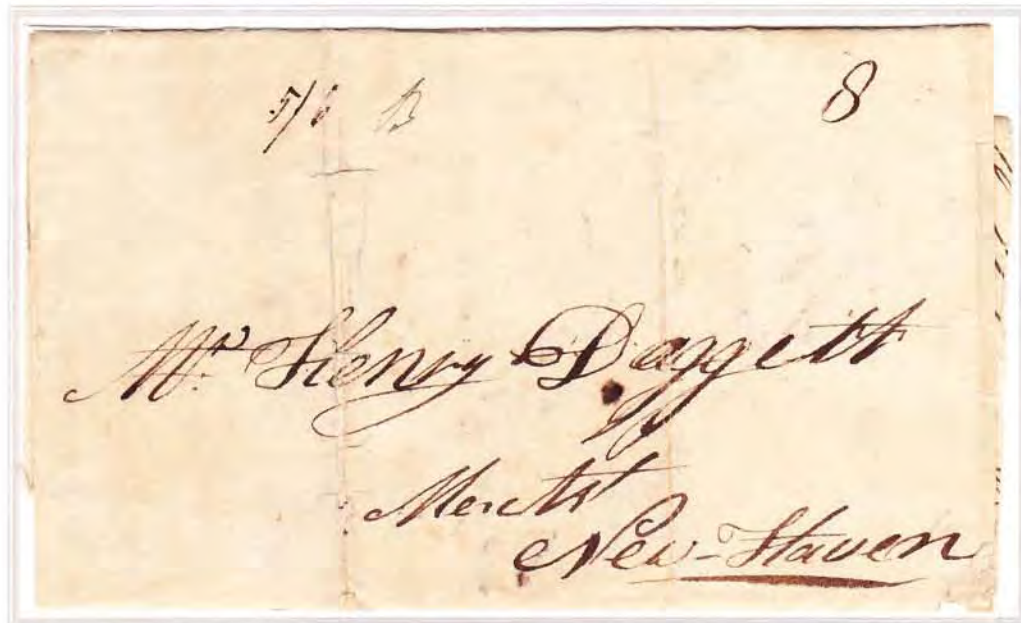 5/6 B 8
Mr. Henry Daggett
Mercht
New-Haven